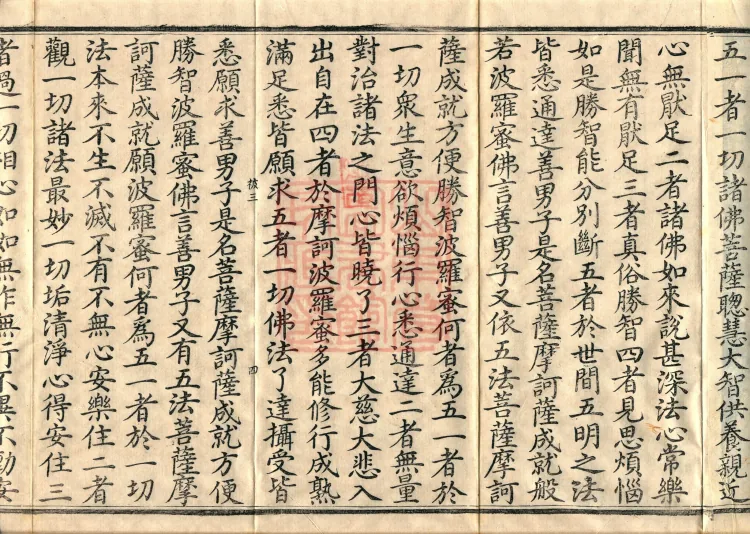 五一者一切諸佛菩薩聰慧大智供養親近
心無猒足二者諸佛如來說甚深法心常樂
聞無有猒足三者真俗勝智四者見思煩惱
如是勝智能分別斷五者於世間五明之法
皆悉通達善男子是名菩薩摩訶薩成就般
若波羅蜜佛言善男子又依五法菩薩摩訶
薩成就方便勝智波羅蜜何者爲五一者於
一切衆生意欲煩惱行心悉通達二者無量
對治諸法之門心皆曉了三者大慈大悲入
出自在四者於摩訶波羅蜜多能修行成熟
滿足悉皆願求五者一切佛法了達攝受皆
三 四
悉願求善男子是名菩薩摩訶薩成就方便
勝智波羅蜜佛言善男子又有五法菩薩摩
訶薩成就願波羅蜜何者爲五一者於一切
法本來不生不滅不有不無心安樂住二者
觀一切諸法最妙一切垢清淨心得安住三
者過一切相心如如無作無行不異不動安